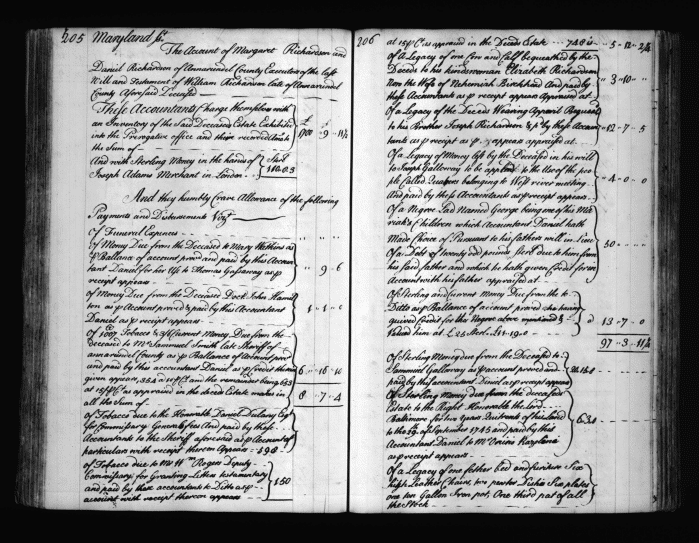 205 Maryland ss.
The Account of Margaret Richardson and
Daniel Richardson of Annarundel County Executors of the last
Will and Testament of William Richardson late of Annarundel
County Aforesaid Deceased
These Accountants Charge themselves with
an Inventory of the Said Deceaseds Estate Exhibited
into the Prerogative office and there recorded Am.o to
the Sum of
And with Sterling Money in the hands of
Joseph Adams Merchant in London
And they humbly Crave Allowance of the following
Payments and Disbursements Vizt
Of Funeral Expences
Of Money Due from the Deceased to Mary Watkins as
p Ballance of account proved and paid by this Accoun
tant Daniel for her Use to Thomas Gassaway as p
receipt appears " 9 - 6
of Money Due from the Deceased Dock John Hamil
ton as p Account proved & paid by this Accountant
Daniel as p receipt appears
Of 1007 Tobacco & Current Money Due from the
deceased to Mr Sammuel Smith late Sheriff of
annarundel County as p Ballance of Account proved
and paid by this accountant Daniel as p Credit therein
given appears, 354 a and the remainder being 653
at as appraised in the deceds Estate makes in
all the Sum of 8 " 7 - 4
Of Tobacco due to the Honorable Daniel Dulany Esqr
for Commissary Generals fees And paid by these
Accountants to the Sheriff aforesaid as p Account of
particulars with receipt thereon Appears - 598
of Tobacco due to Mr Wm Rogers Deputy
Commissary for Granting Letters testamentary
and paid by these accountants to Ditto as p
account with receipt thereon appears 150
206
at 15/ p Ct as appraised in the Deceds Estate 748 is 5 - 12 - 2 1/4
of a Legacy of one Cow and Calf bequeathed by the
Deceds to his kinswoman Elizabeth Richardson
Now the Wife of Nehemiah Birckhead And paid by
these Accountants as p receipt appears Appraised at
of a Legacy of the Deceds Wearing Apparel Bequeat
to his Brother Joseph Richardson & p by these Accoun
tants as p receipt as p appears appraised at 12 - 7 - 5
Of a Legacy of Money left by the Deceased in his will
to Joseph Galloway to be applied to the Use of the peo
ple Called Quakers belonging to West river meeting
And paid by these Accountants as p receipt appears 4 - 0 - 0
Of a Negroe Lad Named George being one of his Ma
riah's Children which Accountant Daniel hath
Made Choice of Pursuant to his fathers will in Lieu
Of a Debt of twenty odd pounds sterl due to him from
his said father and which he hath given Credit for in
Account with his father appraised at
Of Sterling and Current Money Due from the to
Ditto as p Ballance of account proved who having
given Credit for this Negroe above
Valued him at £25 Sterl. £21.19.0 13 - 7 - 0
97 - 3 - 11 1/4
Of Sterling Money due from the Deceased to
Sammuel Galloway as p account proved and
paid by this accountant Daniel as p receipt appears
Of Sterling Money due from the deceased
Estate to the Right Honorable the Lord
Baltimore for two years Quitrent of his Land
to the 29 of September 1745 and paid by this
Accountant Daniel to Mr Onion
as p receipt appears
Of a Legacy of one father bed and furniture Six
high Leather Chairs, two pewter Dishes Six plates
one ten Gallon Iron pot, One third part of all
the Stock